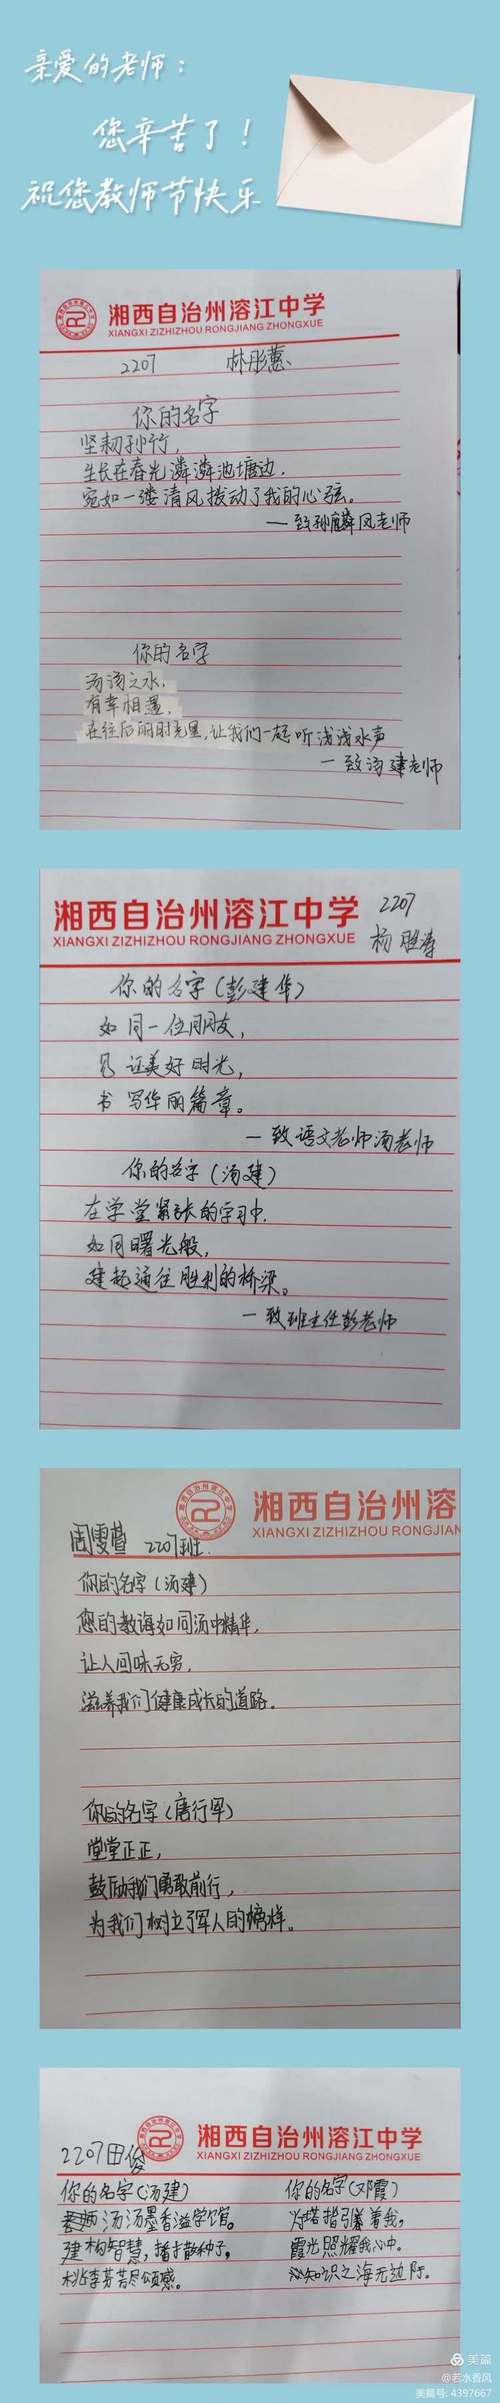 亲爱的老师：
您辛苦了！
祝您教师节快乐
湘西自治州溶江中学
XIANGXI ZIZHIZHOU RONGJIANG ZHONGXUE
2207 林彤蕙
你的名字
坚韧孙竹，
生长在春光潾潾池塘边，
宛如一缕清风拨动了我的心弦。
—致孙麟风老师
你的名字
汤汤之水，
有幸相遇，
在往后的时光里，让我们一起听浅浅水声
—致汤建老师
湘西自治州溶江中学
XIANGXI ZIZHIZHOU RONGJIANG ZHONGXUE
2207
杨胜涛
你的名字（彭建华）
如同一位朋友，
见证美好时光，
书写华丽篇章。
—致语文老师汤老师
你的名字（汤建）
在学堂紧张的学习中，
如同曙光般，
建起通往胜利的桥梁。
—致班主任彭老师
湘西自治州溶
XIANGXI ZIZHIZHOU RONGJIANG
周雯萱 2207班
你的名字（汤建）
您的教诲如同汤中精华，
让人回味无穷，
滋养我们健康成长的道路。
你的名字（唐行军）
堂堂正正，
鼓励我们勇敢前行，
为我们树立了军人的榜样。
湘西自治州溶江中学
XIANGXI ZIZHIZHOU RONGJIANG ZHONGXUE
2207田俊
你的名字（汤建）
汤汤墨香溢学馆。
建构智慧，播散种子，
桃李芬芳尽颂感。
你的名字（邓霞）
灯塔指引着我，
霞光照耀我心中。
知识之海无边际。
美篇
@若水香风
美篇号：4397667